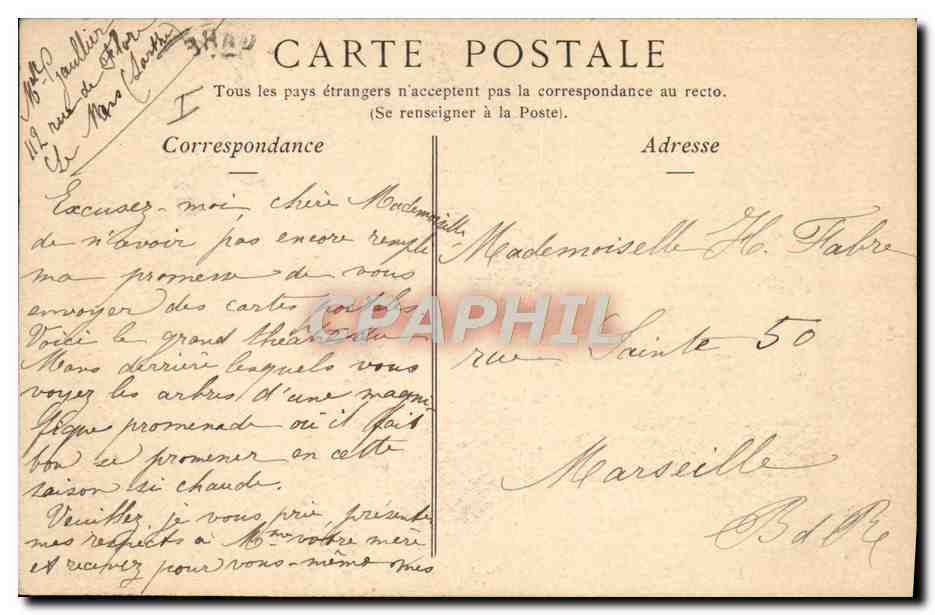 Mlle Gaullier
112 rue de Flore
Le Mans (Sarthe)
I
CARTE POSTALE
Tous les pays étrangers n'acceptent pas la correspondance au recto.
(Se renseigner à la Poste).
Correspondance
Excusez-moi, chère Mademoiselle
de n'avoir pas encore rempli
ma promesse de vous
envoyer des cartes postales.
Voici le grand théâtre du
Mans derrière lesquels vous
voyez les arbres d'une magni-
fique promenade où il fait
bon se promener en cette
saison si chaude.
Veuillez, je vous prie, présenter
mes respects à Mme votre mère
et recevez pour vous-même mes
Adresse
Mademoiselle H. Fabre
rue Sainte 50
Marseille
B d R
CPAPHIL